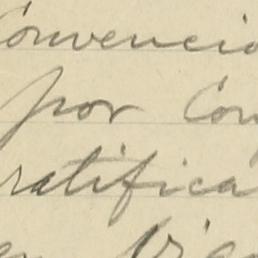 Convencio
por Con
ratifica